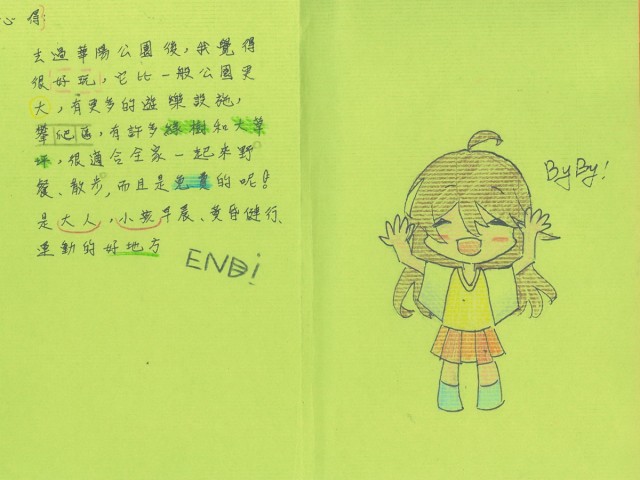 心得
去過華陽公園後,我覺得
很好玩,它比一般公園更
大,有更多的遊樂設施,
攀爬區,有許多綠樹和大草
坪,很適合全家一起來野
餐、散步,而且是免費的呢!
是大人,小孩早晨、黃昏健行、
運動的好地方
END!
ByBy!